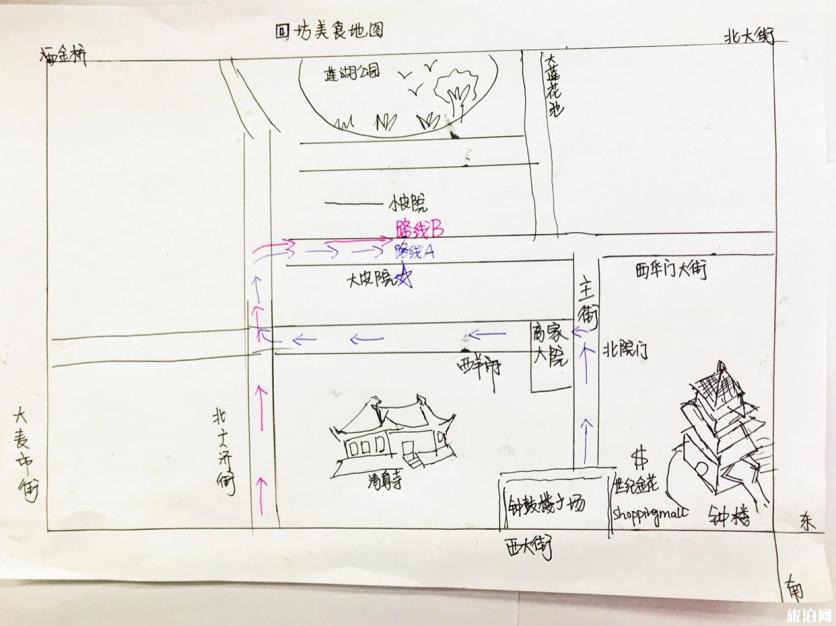 回坊美食地图
洒金桥
北大街
莲湖公园
大莲花池
小皮院
路线B
路线A
大皮院
西华门大街
主街
商家大院
北院门
西羊市
大麦市街
北广济街
清真寺
$
世纪金花
shoppingmall
钟鼓楼广场
钟楼
西大街
东
南
旅泊网